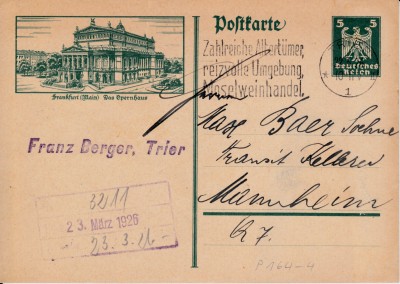 Postkarte
5 5
Deutsches
Reich
Zahlreiche Altertümer,
reizvolle Umgebung,
Moselweinhandel.
1
Frankfurt (Main) Das Opernhaus
Herrn
Max Baer Soehne
Transit Kellerei
Mannheim
Q 7.
Franz Berger, Trier
3211
23. März 1926
23.3.26
P 164-4